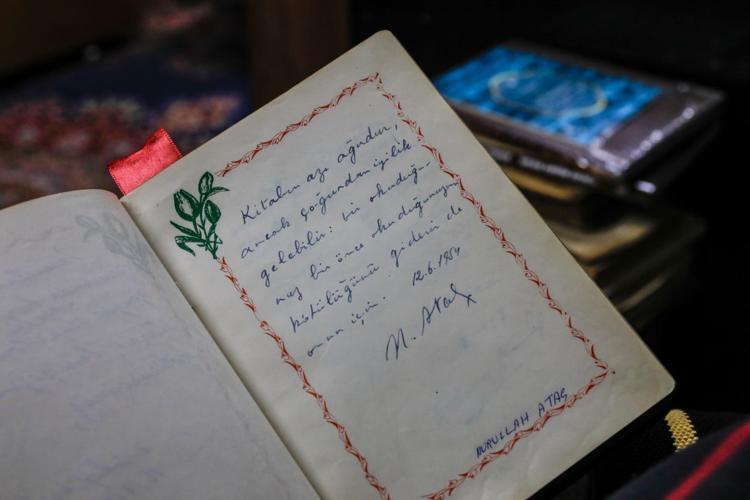 Kitabın azı ağudur,
ancak çoğundan iyilik
gelebilir: bir okuduğu-
nuz bir önce okuduğunuzun
kötülüğünü giderir de
onun için. 12.6.1954
N. Ataç
NURULLAH ATAÇ